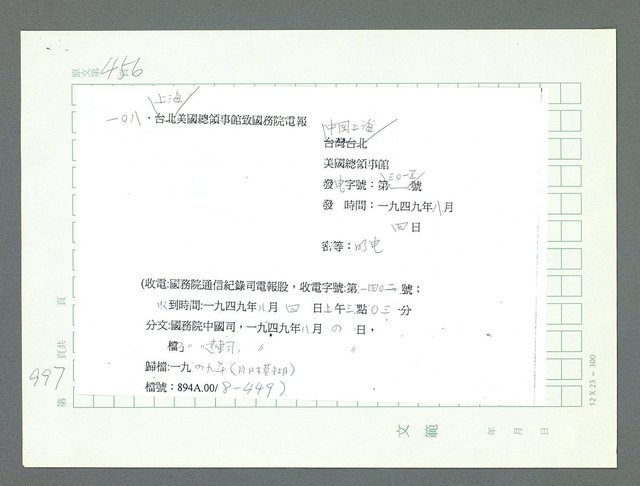 原文第456號
上海
一〇八、台北美國總領事館致國務院電報
中国上海
台灣台北
美國總領事館
發电字號：第三〇一五號
發 時間：一九四九年八月
四日
密等：明电
(收電:國務院通信紀錄司電報股，收電字號:第一四〇二號；
收到時間:一九四九年八月四日上午三點〇三分
分文:國務院中國司，一九四九年 八月 日，
檔
歸檔:一九四九年(月日模糊)
檔號：894A.00/8-449)
頁
頁共
997
第
12×25－300
文範
年 月 日